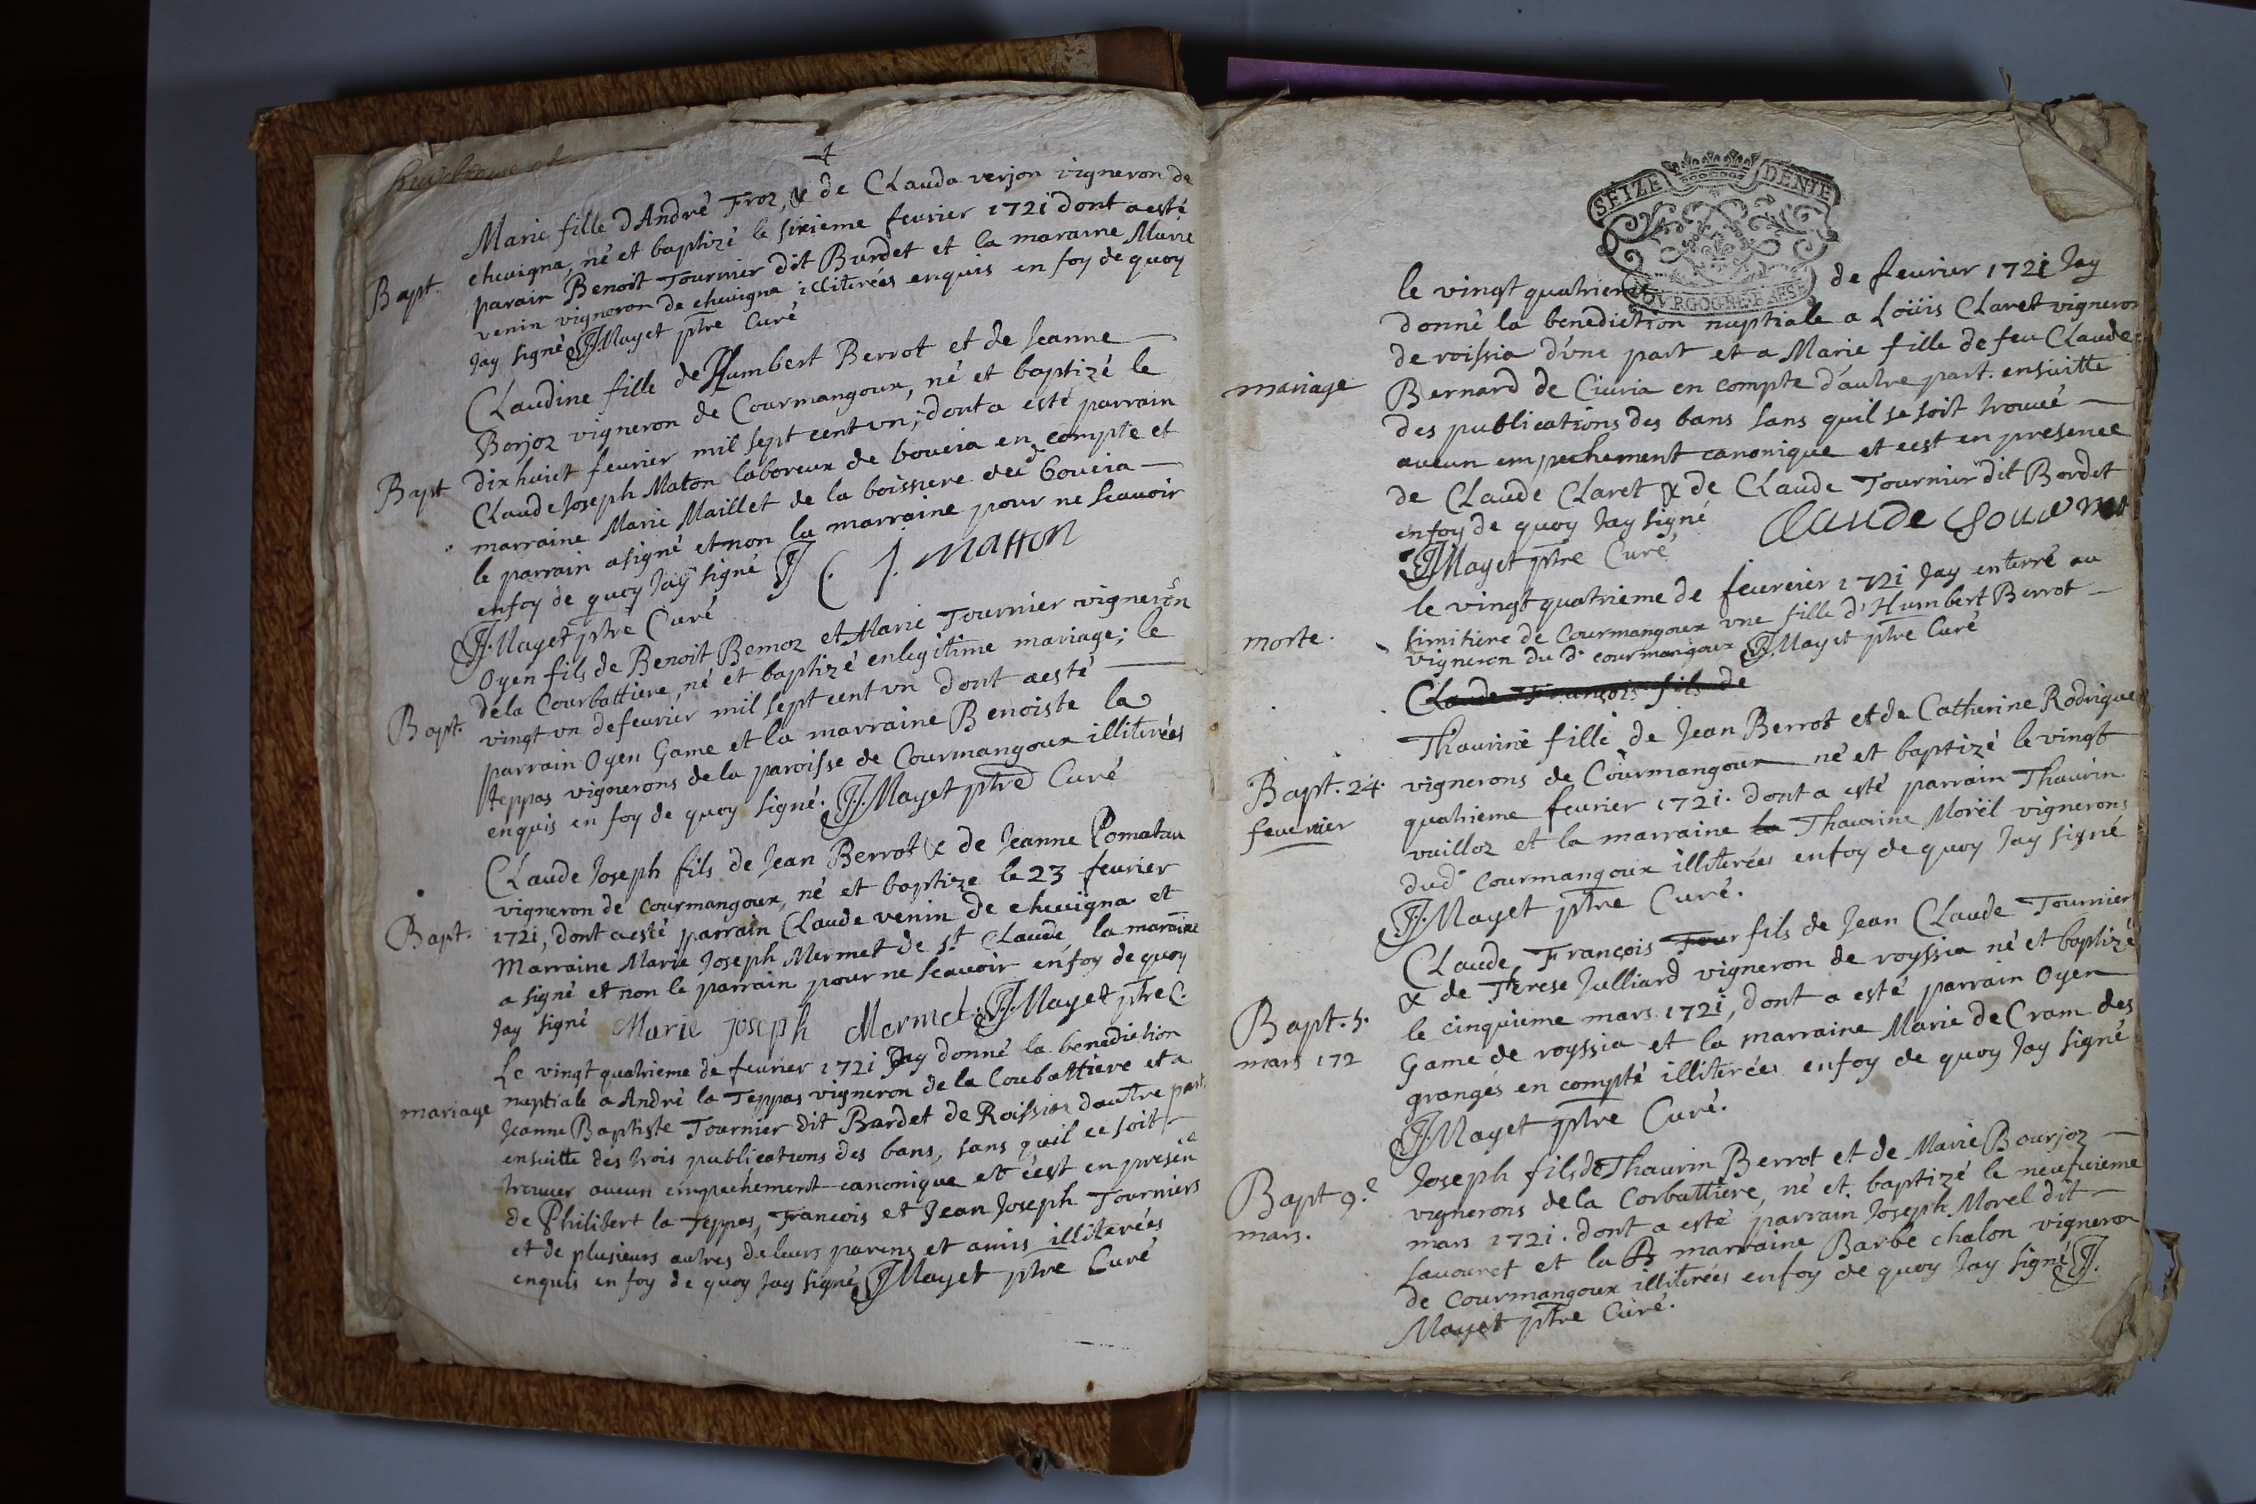 Marie fille d'André Froz, & de Clauda verjon vigneron de
chevigna, né et baptizé le sixieme fevrier 1721 dont a esté
Bapt. parain Benoit Tournier dit Burdet et la maraine Marie
venin vigneron de chevigna illiterées enquis en foy de quoy
Jay signé JJ. Mayet ptre Curé
Claudine fille de Humbert Berrot et de Jeanne
Borjoz vigneron de Courmangoux, né et baptizé le
Bapt dixhuict fevrier mil sept cent vn; dont a esté parrain
Claude Joseph Maton laboreux de boucia en compte et
marraine Marie Maillet de la boissiere de boucia
le parrain a signé et non la marraine pour ne scavoir
enfoy de quoy Jay signé JJ C. J. Matton
JJ. Mayet ptre Curé
Oyen fils de Benoit Bemoz et Marie Tournier vigneron
de la Courbattiere, né et baptizé enlegitime mariage; le
Bapt. vingt vn de fevrier mil sept cent vn dont a esté
parrain Oyen Game et la marraine Benoiste la
teppas vignerons de la paroisse de Courmangoux illiterées
enquis en foy de quoy signé. JJ. Mayet ptre Curé
Claude Joseph fils de Jean Berrot & de Jeanne Pomatau
vigneron de Courmangoux, né et baptize le 23 fevrier
Bapt. 1721, dont a esté parrain Claude venin de chevigna et
Marraine Marie Joseph Mermet de st Claude la maraine
a signé et non le parrain pour ne scavoir enfoy de quoy
Jay signé Marie joseph Mermet JJ. Mayet ptre C.
Le vingt quatrieme de fevrier 1721 Jay donné la benediction
mariage nuptiale a André la Teppas vigneron de la Coubattiere et a
Jeanne Baptiste Tournier dit Bardet de Roissia dautre part
ensuitte des trois publications des bans, sans quil ce soit
trouver aucun empechement canonique et c'est en presence
de Philibert la Teppas, Francois et Jean Joseph Tourniers
et de plusieurs autres de leurs parens et amis illiterées
enquis en foy de quoy Jay signé JJ Mayet ptre Curé
SEIZE DENIE
BOVRGOGNE BRESSE
le vingt quatrieme de fevrier 1721 Jay
donné la benediction nuptiale a Loüis Claret vigneron
de roissia d'vne part et a Marie fille de feu Claude
mariage Bernard de Civria en compte d'autre part. ensuitte
des publications des bans sans quil se soit trouvé
aucun empechement canonique et cest en presence
de Claude Claret & de Claude Tournier dit Bordet
enfoy de quoy Jay signé Claude
JJ Mayet ptre Curé
le vingt quatrieme de fevrerier 1721 Jay enterré au
morte. simitiere de Courmangoux vne fille d'Humbert Berrot
vigneron du d. courmangoux JJ. Mayet ptre Curé
Claude François fils de
Thaurine fille de Jean Berrot et de Catherine Rodrigue
Bapt. 24. vignerons de Courmangoux né et baptizé le vingt
fevrier quatrieme fevrier 1721. dont a esté parrain Thaurin
vuilloz et la marraine la Thaurine Morël vignerons
dud. Courmangoux illiterées enfoy de quoy Jay signé
JJ. Mayet ptre Curé.
Claude François Tour fils de Jean Claude Tournier
& de Therese Julliard vigneron de royssia né et baptizé
Bapt. 5. le cinquieme mars 1721, dont a esté parrain Oyen
mars 172 Game de royssia et la marraine Marie de Cram des
granges en compte illiterées enfoy de quoy Jay signé
JJ. Mayet ptre Curé.
Joseph fils de Thaurin Berrot et de Marie Bourjoz
Bapt 9.e vignerons de la Corbattiere, né et baptizé le neufvieme
mars. mars 1721. dont a esté parrain Joseph Morel dit
savouret et la B marraine Barbe chalon vigneron
de Courmangoux illiterées enfoy de quoy Jay signé JJ.
Mayet ptre Curé.